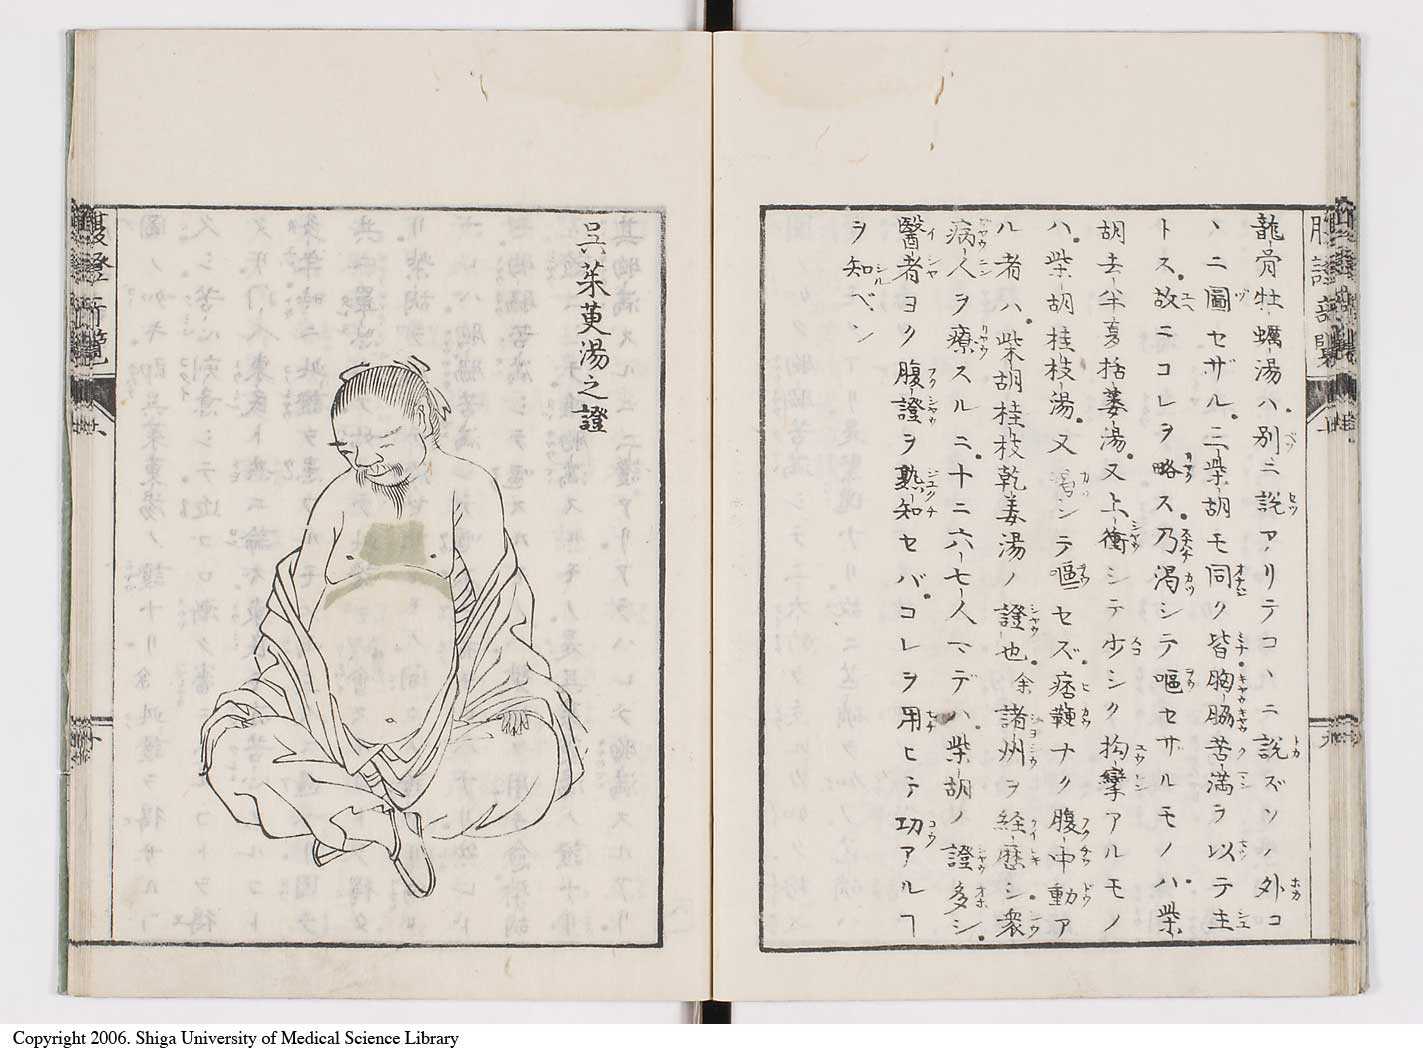 龍骨牡蠣湯ハ別ニ説アリテコヽニ説ズソノ外コ
ヽニ圖セザル二三柴胡モ同ク皆胸脇苦満ヲ以テ主
トス故ニコレヲ略ス乃渇シテ嘔セサルモノハ柴
胡去半夏括蔞湯又上衝シテ少シク拘攣アルモノ
ハ柴胡桂枝湯又渇シテ嘔セズ痞鞕ナク腹中動ア
ル者ハ柴胡桂枝乾姜湯ノ證也余諸州ヲ経歴シ衆
病人ヲ療スルニ十ニ六七人マデハ柴胡ノ證多シ
醫者ヨク腹證ヲ熟知セバコレヲ用ヒテ功アルヿ
ヲ知ベシ
呉茱萸湯之證
腹證奇覽
Copyright 2006. Shiga University of Medical Science Library